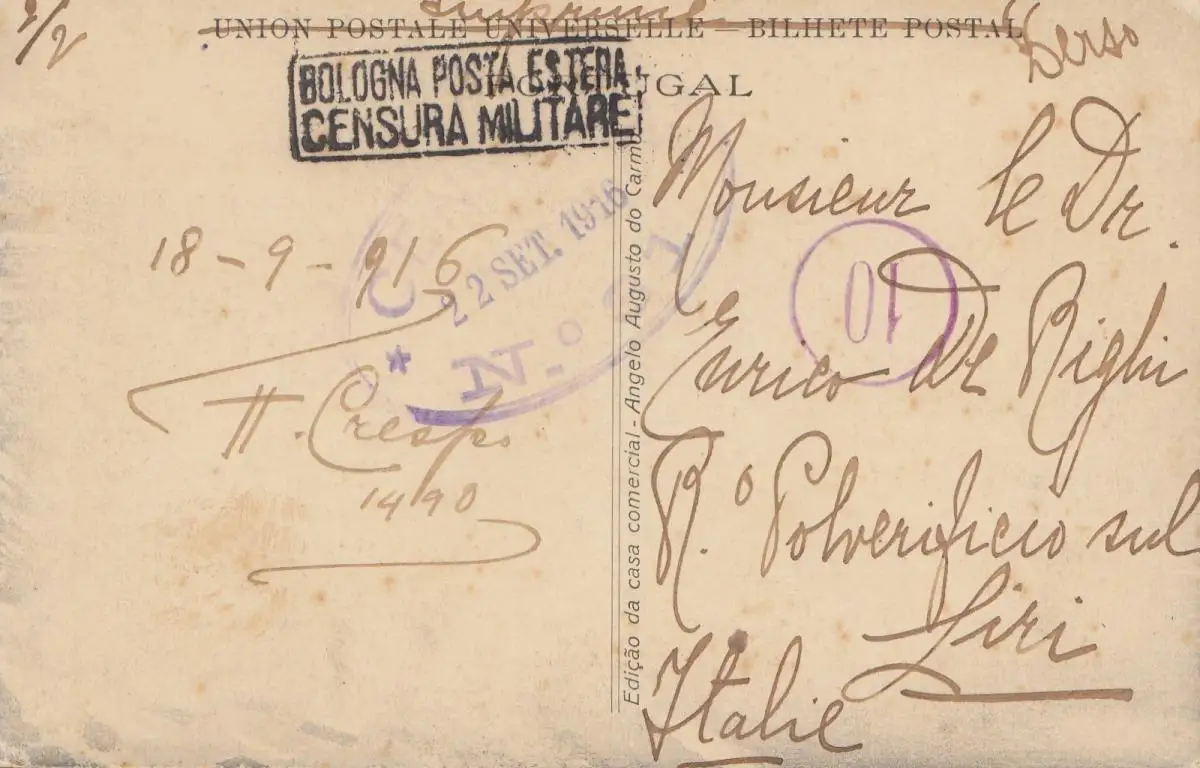 UNION POSTALE UNIVERSELLE — BILHETE POSTAL
PORTUGAL
BOLOGNA POSTA ESTERA
CENSURA MILITARE
22 SET. 1916
* N.º
18 - 9 - 916
H. Crespo
1490
Edição da casa comercial - Angelo Augusto do Carmo
Monsieur le Dr.
10
Enrico De Righi
R.º Polverificio sul
Liri
Italie